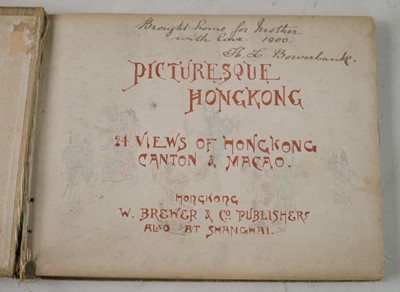 Brought home for Mother
with love. 1900.
Th. L. Bowerbank.
PICTURESQUE
HONGKONG
24 VIEWS OF HONGKONG
CANTON & MACAO.
HONGKONG
W. BREWER & CO. PUBLISHERS
ALSO AT SHANGHAI.